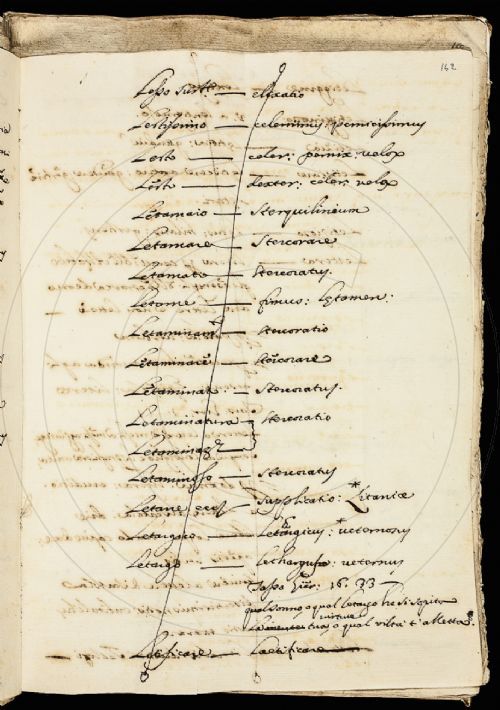 162
Lesso sust. — elixatio
Lestissimo — celerrimus: pernicissimus
Lesto — celer: pernix: velox
Lesto — dexter: celer: velox
Letamaio — sterquilinium
Letamare — stercorare
Letamato — stercoratus.
Letame — fimus: lętamen:
Letaminam — stercoratio
Letaminare — stercorare
Letaminat — stercoratus.
Letaminatura — stercoratio
Letaminaz
Letaminoso — stercoratus
Letane — supplicatio: Litaniæ
Letargico — Letargicus: veternosus
Letargo — lethargus: veternus
Tasso Gier: 16. 33 —
qual sonno o qual letargo ha sì sopita
la tua virtute o qual viltà t'alletta.
Letificare — Laetificare